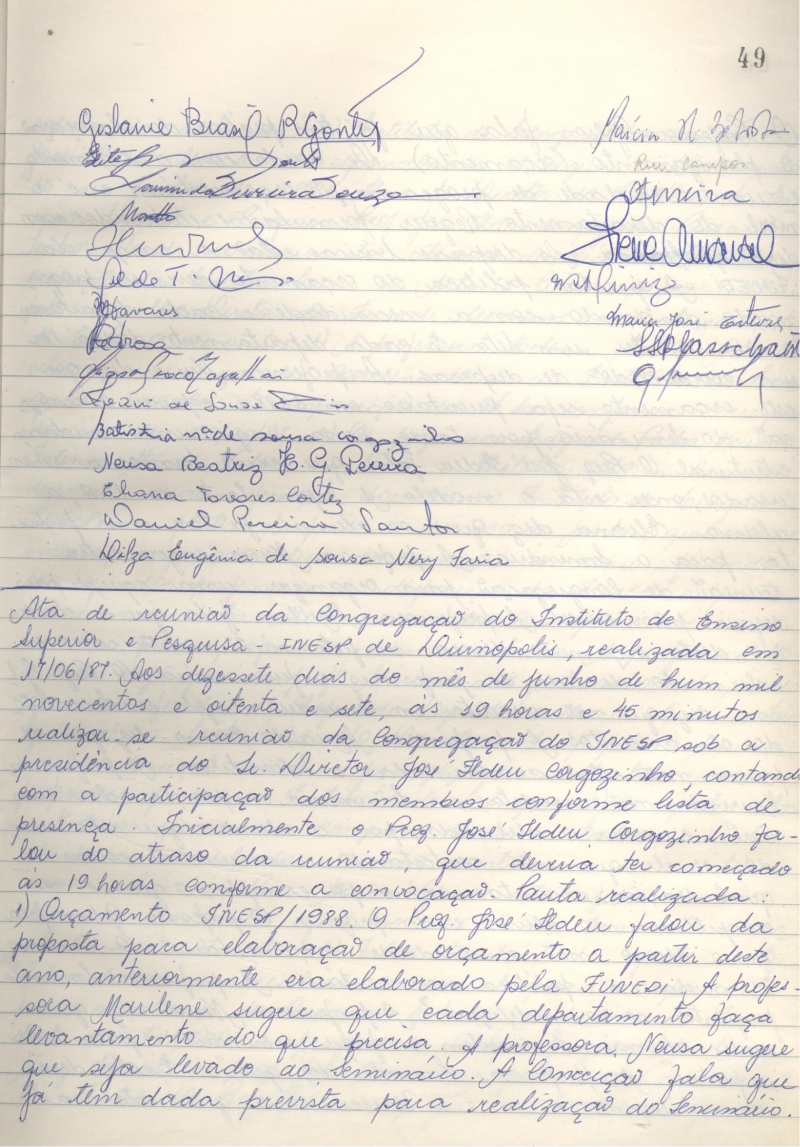 49
Gislaine Brasil R Gontij
Márcia
Rui Campos
Pereira Souza
Ferreira
Irene Amaral
Gildo T.
Diniz
Tavares
Maria José Esteves
Pedrosa
de Sousa
Batistina Mª de Sousa Corgozinho
Neusa Beatriz H. G. Pereira
Eliana Tavares Cortez
Daniel Pereira Santos
Dilza Eugênia de Sousa Nery Faria
Ata de reuniaõ da Congregaçaõ do Instituto de Ensino
Superior e Pesquisa - INESP de Divinópolis, realizada em
17/06/87. Aos dezessete dias do mês de junho de hum mil
novecentos e oitenta e sete, ás 19 horas e 45 minutos
realizou-se reuniaõ da Congregaçaõ do INESP sob a
presidência do Sr. Diretor José Ildeu Corgozinho, contand
com a participaçaõ dos membros conforme lista de
presença. Inicialmente o Prof. José Ildeu Corgozinho fa-
lou do atraso da reuniaõ, que deveria ter começado
ás 19 horas conforme a convocaçaõ. Pauta realizada:
1) Orçamento INESP/1988. O Prof. José Ildeu falou da
proposta para elaboraçaõ de orçamento a partir deste
ano, anteriormente era elaborado pela FUNEDI. A profes-
sora Marilene sugere que cada departamento faça
levantamento do que precisa. A professora Neusa sugere
que seja levado ao Seminário. A Conceiçaõ fala que
já tem dada prevista para realizaçaõ do Seminário.